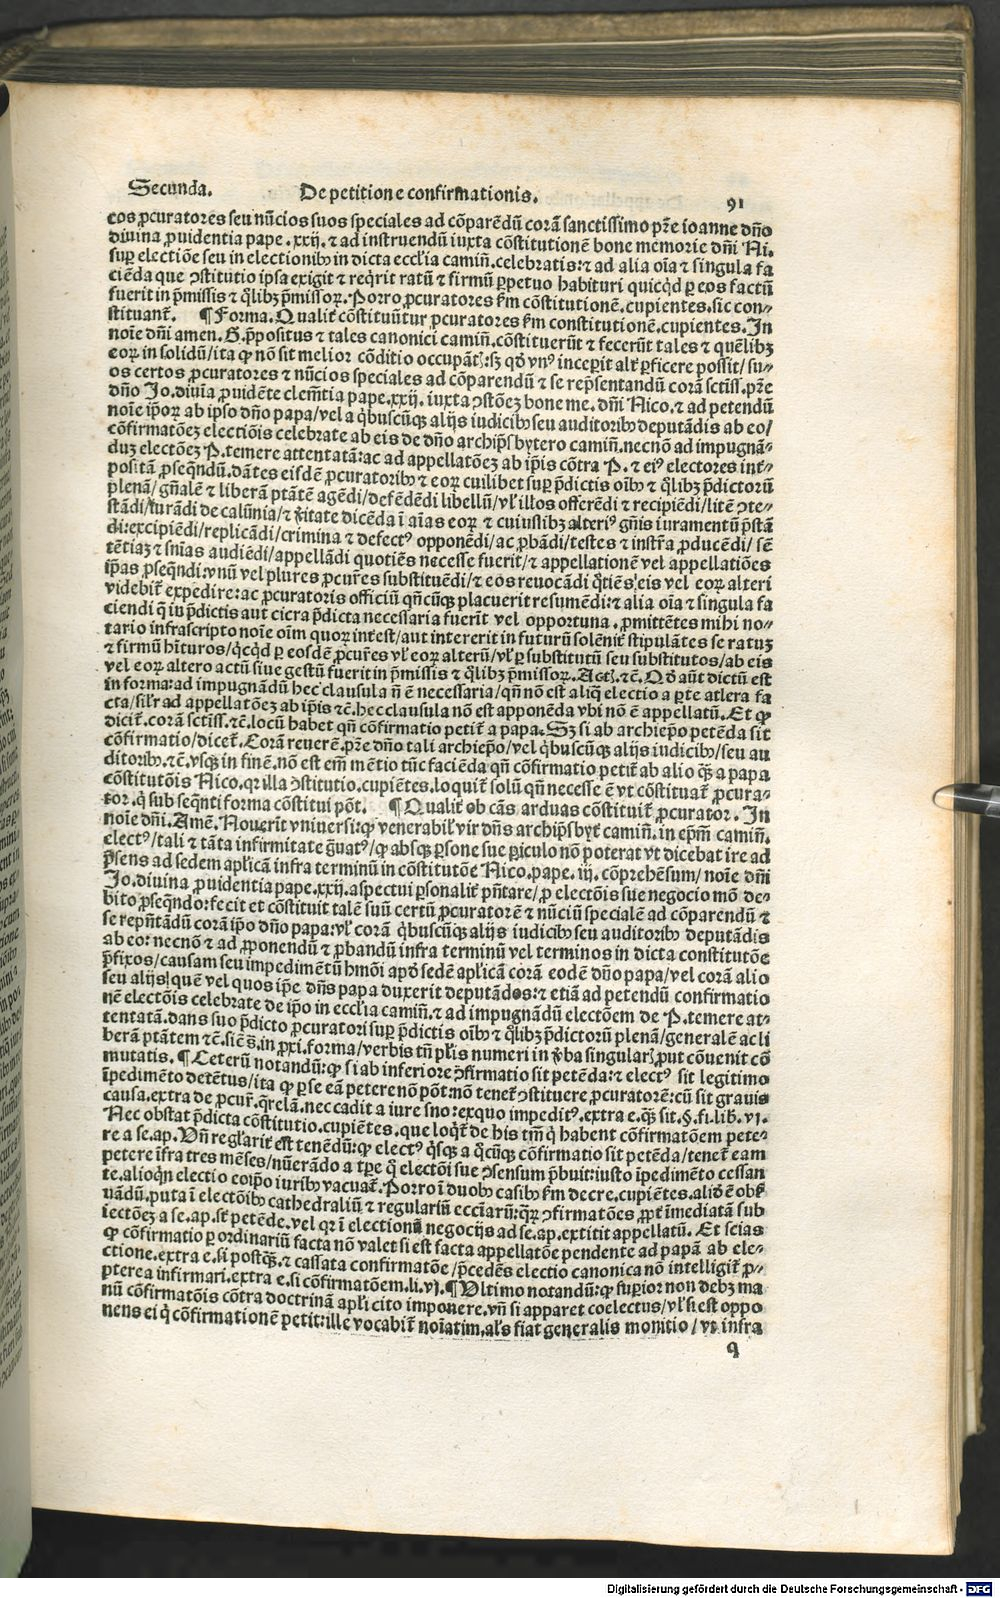 Secunda. De petitione confirmationis. 91
eos ꝓcuratores seu nũcios suos speciales ad cõparẽdũ corã sanctissimo pr̃e ioanne dño
diuina ꝓuidentia pape .xxij. ⁊ ad instruendũ iuxta cõstitutionẽ bone memorie dñi Ni.
suꝑ electiõe seu in electionibꝰ in dicta eccl̃ia camiñ. celebratis: ⁊ ad alia oĩa ⁊ singula fa
ciẽda que ꝯstitutio ipsa exigit ⁊ reqͥrit ratũ ⁊ firmũ ꝑpetuo habituri quicqͥd ꝑ eos factũ
fuerit in p̃missis ⁊ qͦlibꝫ p̃missoꝝ. Porro ꝓcuratores ẜm cõstitutionẽ. cupientes. sic con⸗
stituant̃. ¶ Forma. Qualit̃ cõstituũtur ꝓcuratores ẜm constitutionẽ. cupientes. In
noĩe dñi amen. G. p̃positus ⁊ tales canonici camiñ. cõstituerũt ⁊ fecerũt tales ⁊ quẽlibꝫ
eoꝝ in solidũ/ ita ꝙ nõ sit melior cõditio occupãt̃: sꝫ qd̓ vnꝰ inceperit alt̃ ꝑficere possit/ su⸗
os certos ꝓcuratores ⁊ nũcios speciales ad cõparendũ ⁊ se rep̃sentandũ corã sctiss. pr̃e
dño Jo. diuĩa ꝓuidẽte clem̃tia pape .xxij. iuxta ꝯstõeꝫ bone me. dñi Nico. ⁊ ad petendũ
noĩe ip̃oꝝ ab ipso dño papa/ vel a qͥbuscũqꝫ alijs iudicibꝰ seu auditoribꝰ deputãdis ab eo/
cõfirmatõeꝫ electiõis celebrate ab eis de dño archip̃sbytero camiñ. necnõ ad impugnã⸗
duꝫ electõeꝫ P. temere attentatã: ac ad appellatõeꝫ ab ip̃is cõtra P. ⁊ eiꝰ electores int̃⸗
positã ꝓseqͥndũ. dãtes eisdẽ ꝓcuratoribꝰ ⁊ eoꝝ cuilibet suꝑ p̃dictis oĩbꝰ ⁊ qͦlibꝫ p̃dictorũ
plenã/ gñalẽ ⁊ liberã ptãtẽ agẽdi/ defẽdẽdi libellũ/ vl̃ illos offerẽdi ⁊ recipiẽdi/ litẽ ꝯte⸗
stãdi/ iurãdi de calũnia/ ⁊ v̓itate dicẽda ĩ aĩas eoꝝ ⁊ cuiuslibꝫ alteriꝰ gñis iuramentũ p̃stã
di: excipiẽdi/ replicãdi/ crimina ⁊ defectꝰ opponẽdi/ ac ꝓbãdi/ testes ⁊ instr̃a ꝓducẽdi/ sẽ
tẽtiaꝫ ⁊ sñias audiẽdi/ appellãdi quotiẽs necesse fuerit/ ⁊ appellationẽ vel appellatiões
ip̃as ꝓseqͥndi: vnũ vel plures ꝓcur̃es substituẽdi/ ⁊ eos reuocãdi qͦtiẽs eis vel eoꝝ alteri
videbit̃ expedire: ac ꝓcuratoris officiũ qñcũqꝫ placuerit resumẽdi: ⁊ alia oĩa ⁊ singula fa
ciendi q̃ ĩ p̃dictis aut circa p̃dicta necessaria fuerĩt vel opportuna. ꝓmittẽtes mihi no⸗
tario infrascripto noĩe oĩm quoꝝ int̃est/ aut intererit in futurũ solẽnit̃ stipulãtes se ratuꝫ
⁊ firmũ hĩturos/ qͥcqͥd ꝑ eosdẽ ꝓcur̃es vl̃ eoꝝ alterũ/ vl̃ ꝑ substitutũ seu substitutos/ ab eis
vel eoꝝ altero actũ siue gestũ fuerit in p̃missis ⁊ qͦlibꝫ p̃missoꝝ. Act̃. ⁊c̃. Qd̓ aũt dictũ est
in forma: ad impugnãdũ hec clausula ñ ẽ necessaria/ qñ nõ est aliq̃ electio a ꝑte altera fa
cta/ sil̃r ad appellatõeꝫ ab ip̃is ⁊c̃. hec clausula nõ est apponẽda vbi nõ ẽ appellatũ. Et ꝙ
dicit̃. corã sctiss. ⁊c̃. locũ habet qñ cõfirmatio petit̃ a papa. Sꝫ si ab archiep̃o petẽda sit
cõfirmatio/ dicet̃. Corã reuerẽ. pr̃e dño tali archiep̃o/ vel qͥbuscũqꝫ alijs iudicibꝰ/ seu au
ditoribꝰ. ⁊c̃. vsqꝫ in finẽ. nõ est em̃ mẽtio tũc faciẽda qñ cõfirmatio petit̃ ab alio qͣꝫ a papa
cõstitutõis Nico. qꝛ illa ꝯstitutio. cupiẽtes. loquit̃ solũ qñ necesse ẽ vt cõstituat̃ ꝓcura⸗
tor. q̃ sub seqͥnti forma cõstitui põt. ¶ Qualit̃ ob cãs arduas cõstituit̃ ꝓcurator. In
noĩe dñi. Amẽ. Nouerĩt vniuersi: ꝙ venerabil̃ vir dñs archip̃sbyt̃ camiñ. in ep̃m camiñ.
electꝰ/ tali ⁊ tãta infirmitate g̃uatꝰ/ ꝙ absqꝫ ꝑsone sue ꝑiculo nõ poterat vt dicebat ire ad
p̃sens ad sedem aplicã infra terminũ in cõstitutõe Nico. pape. iij. cõprehẽsum/ noĩe dñi
Jo. diuina ꝓuidentia pape .xxij. aspectui ꝑsonalit̃ pñtare/ ꝓ electõis sue negocio mõ de⸗
bito ꝓseqͥndo: fecit et cõstituit talẽ suũ certũ ꝓcuratorẽ ⁊ nũciũ specialẽ ad cõparendũ ⁊
se repñtãdũ corã ip̃o dño papa: vl̃ corã qͥbuscũqꝫ alijs iudicibꝰ seu auditoribꝰ deputãdis
ab eo: necnõ ⁊ ad ꝓponendũ ⁊ ꝓbandũ infra terminũ vel terminos in dicta constitutõe
p̃fixos/ causam seu impedimẽtũ hmõi apd̓ sedẽ aplicã corã eodẽ dño papa/ vel corã alio
seu alijs/ quẽ vel quos ip̃e dñs papa duxerit deputãdos: ⁊ etiã ad petendũ confirmatio
nẽ electõis celebrate de ip̃o in eccl̃ia camiñ. ⁊ ad impugnãdũ electõem de P. temere at⸗
tentatã. dans suo p̃dicto ꝓcuratori suꝑ p̃dictis oĩbꝰ ⁊ qͦlibꝫ p̃dictorũ plenã/ generalẽ ac li
berã ptãtem ⁊c̃. sic̃ s. in ꝓxi. forma/ verbis tñ pl̃is numeri in v̓ba singular̃ ꝓut cõuenit cõ
mutatis. ¶ Ceterũ notandũ: ꝙ si ab inferiore ꝯfirmatio sit petẽda: ⁊ electꝰ sit legitimo
ĩpedimẽto detẽtus/ ita ꝙ ꝑ se eã petere nõ põt: nõ tenet̃ ꝯstituere ꝓcuratorẽ: cũ sit grauis
causa. extra de ꝓcur̃. qͣrelã. nec cadit a iure suo: exquo impeditꝰ. extra e. qͣꝫ sit. §. fi. lib. vj.
Nec obstat p̃dicta cõstitutio. cupiẽtes. que loqͥt̃ de his tm̃ qͥ habent cõfirmatõem pete⸗
re a se. ap. Vñ regl̃arit̃ est tenẽdũ: ꝙ electꝰ qͥsqꝫ a qͦcũqꝫ cõfirmatio sit petẽda/ tenet̃ eam
petere ĩfra tres mẽses/ nũerãdo a tꝑe qͦ electõi sue ꝯsensum p̃buit: iusto ĩpedimẽto cessan
te. alioqͥn electio eoip̃o iuribꝰ vacuat̃. Porro ĩ duobꝰ casibꝰ ẜm decre. cupiẽtes. aliđ ẽ obẜ
uãdũ. puta ĩ electõibꝰ cathedraliũ ⁊ regulariũ eccĩarũ: qͣꝝ ꝯfirmatões ꝓpt̃ ĩmediatã sub
iectõeꝫ a se. ap. st̃ petẽde. vel qꝛ ĩ electionũ negocijs ad se. ap. extitit appellatũ. Et scias
ꝙ cõfirmatio ꝑ ordinariũ facta nõ valet si est facta appellatõe pendente ad papã ab ele⸗
ctione. extra e. si postqͣꝫ. ⁊ cassata confirmatõe/ p̃cedẽs electio canonica nõ intelligit̃ ꝓ⸗
pterea infirmari. extra e. si cõfirmatõem. li. vj. ¶ Vltimo notandũ: ꝙ suꝑior non debꝫ ma
nũ cõfirmatõis cõtra doctrinã apl̃i cito imponere. vñ si apparet coelectus/ vl̃ si est oppo
nens ei qͥ cõfirmationẽ petit: ille vocabit̃ noĩatim. al̃s fiat generalis monitio/ vt infra
q
Digitalisierung gefördert durch die Deutsche Forschungsgemeinschaft - DFG